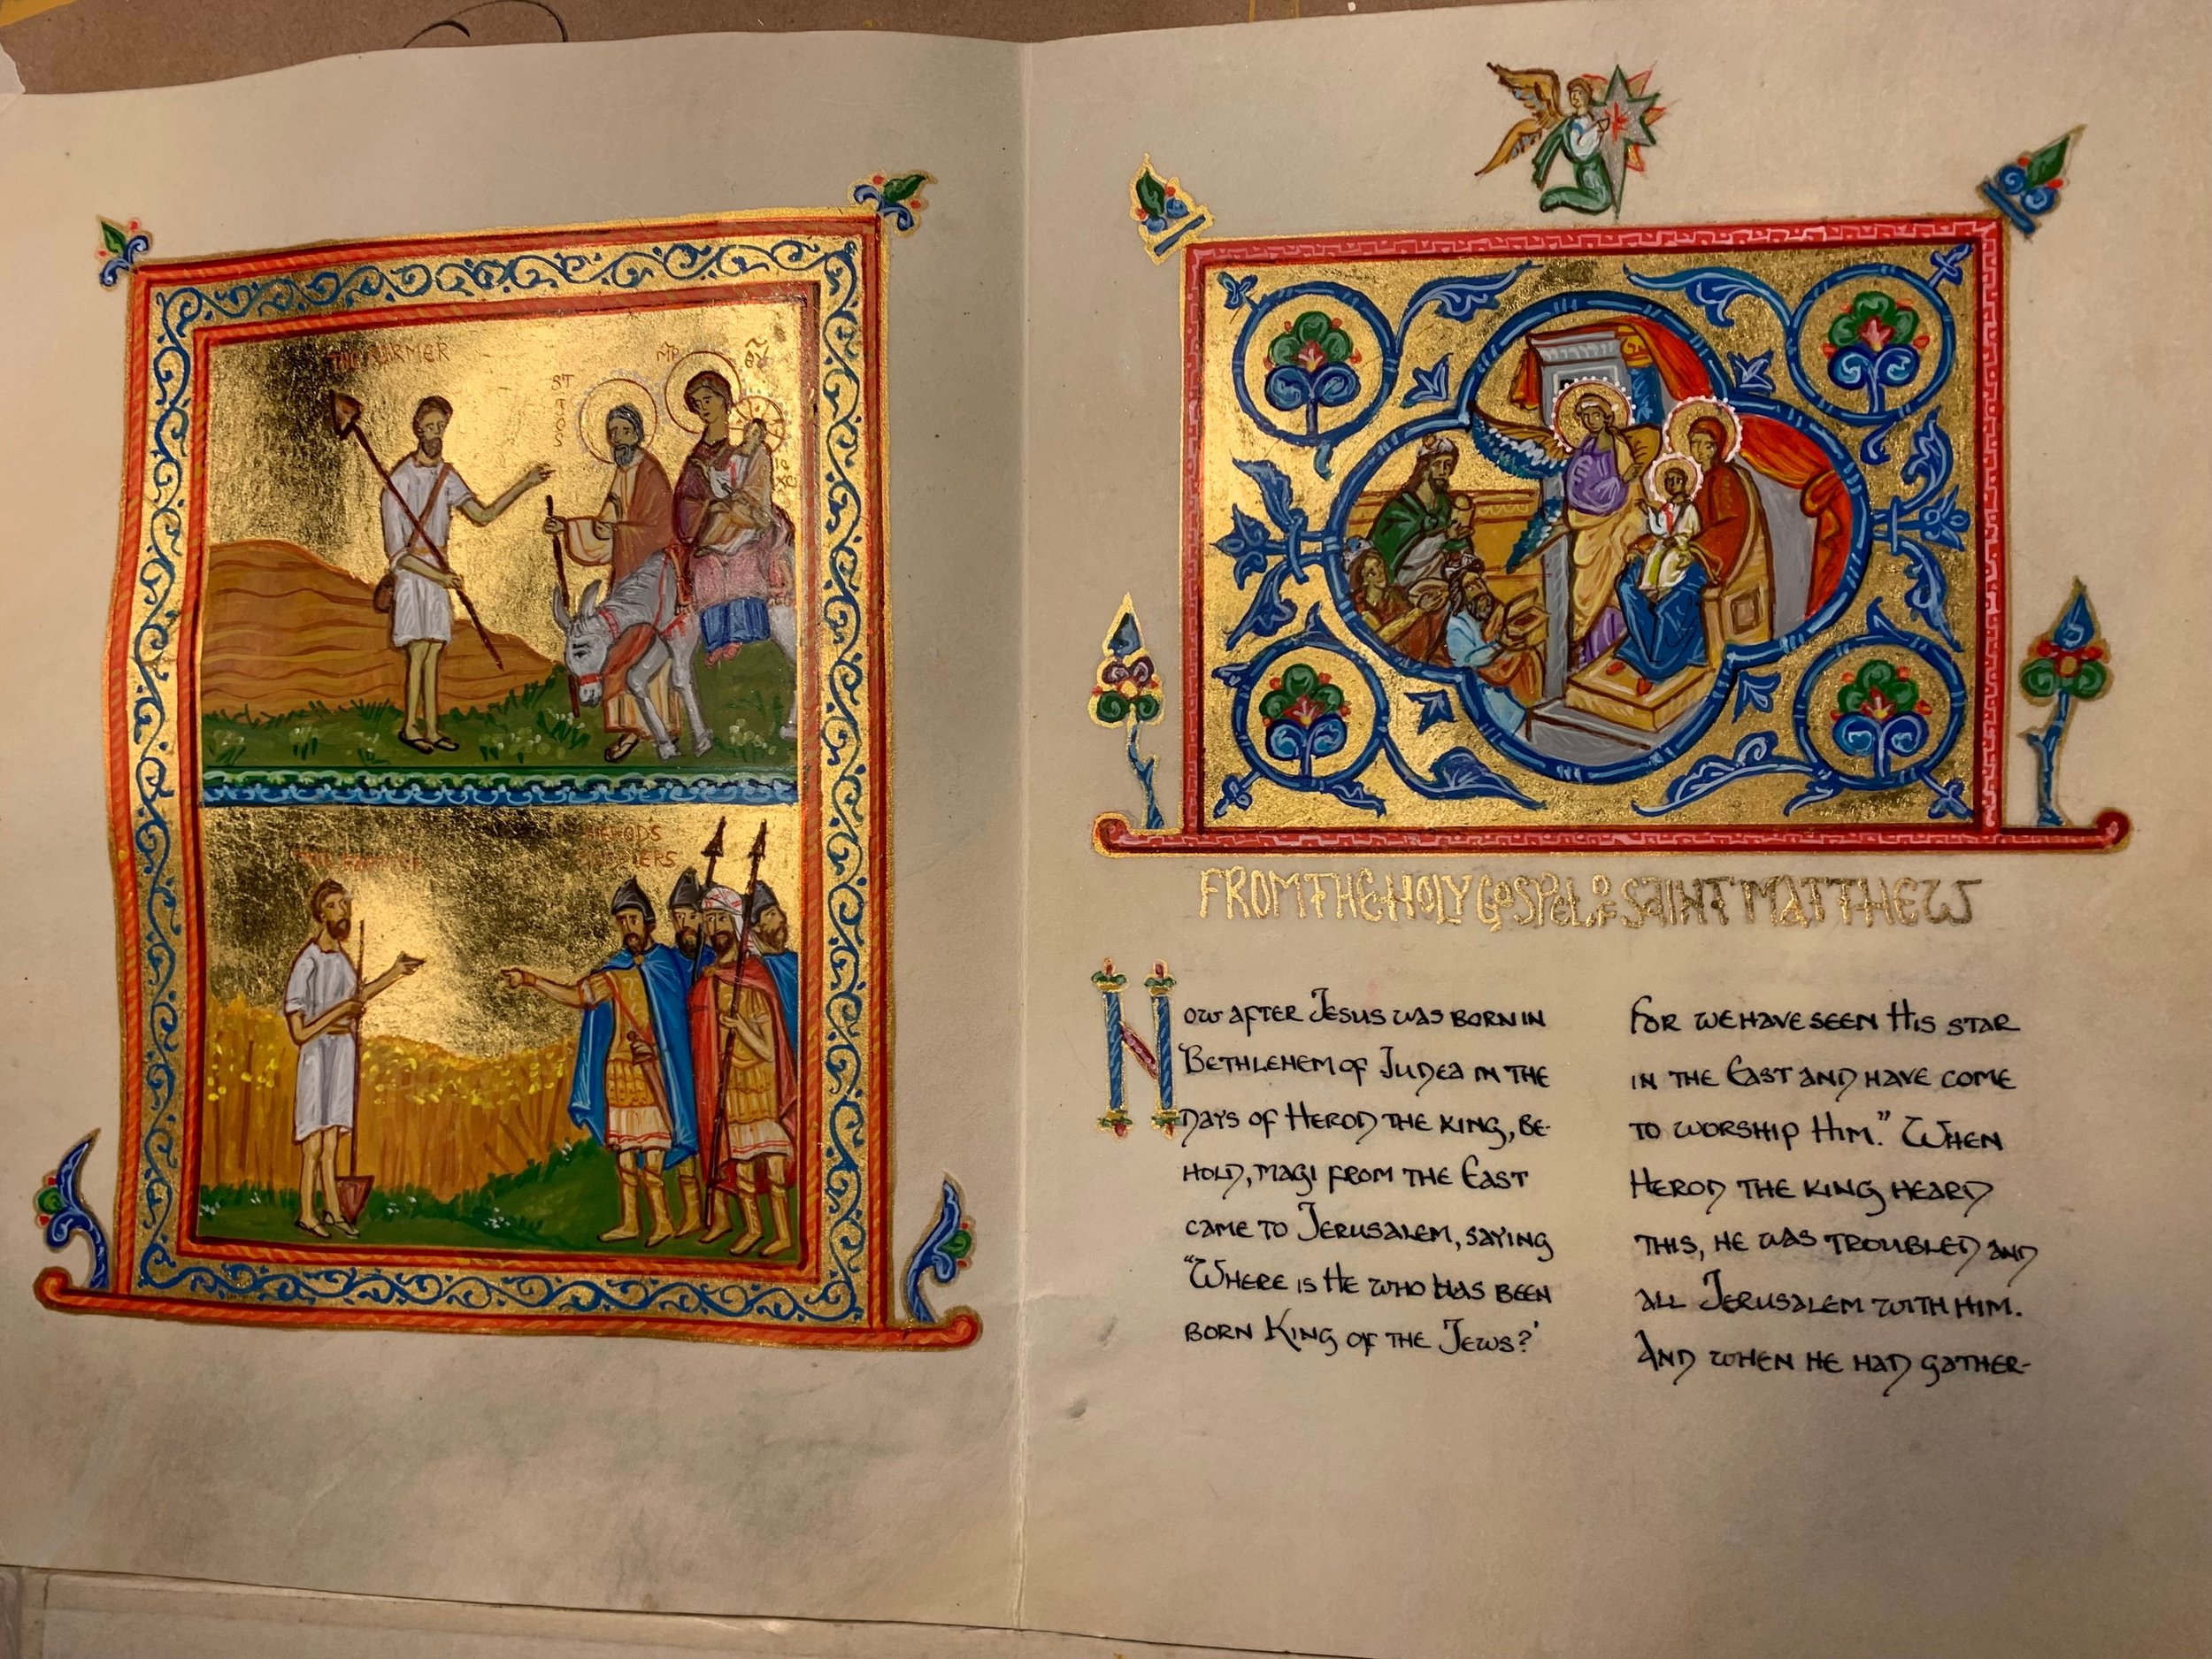 THE FARMER
ST
IOS
ΜΡ ΘΥ
IC
XC
THE FARMER
HEROD'S
SOLDIERS
FROM THE HOLY GOSPEL OF SAINT MATTHEW
NOW AFTER JESUS WAS BORN IN
BETHLEHEM OF JUDEA IN THE
DAYS OF HEROD THE KING, BE-
HOLD, MAGI FROM THE EAST
CAME TO JERUSALEM, SAYING
“WHERE IS HE WHO HAS BEEN
BORN KING OF THE JEWS?'
FOR WE HAVE SEEN HIS STAR
IN THE EAST AND HAVE COME
TO WORSHIP HIM.” WHEN
HEROD THE KING HEARD
THIS, HE WAS TROUBLED AND
ALL JERUSALEM WITH HIM.
AND WHEN HE HAD GATHER-